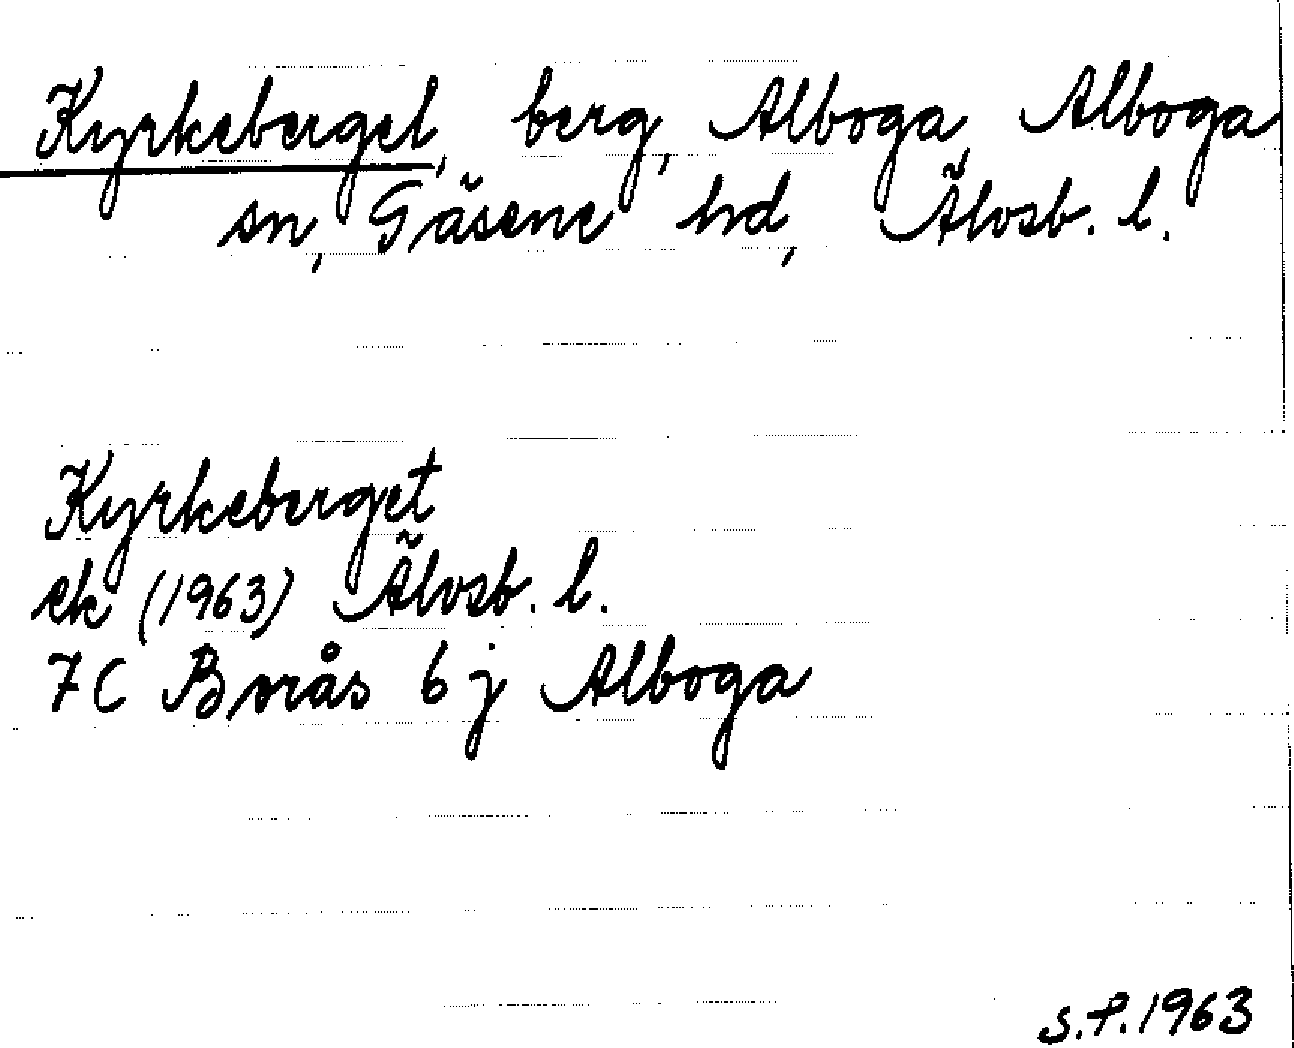 Kyrkeberget, berg, Alboga, Alboga
sn, Gäsene hd, Älvsb. l.
Kyrkeberget
ek (1963) Älvsb. l.
7C Borås 6j Alboga
S.P. 1963